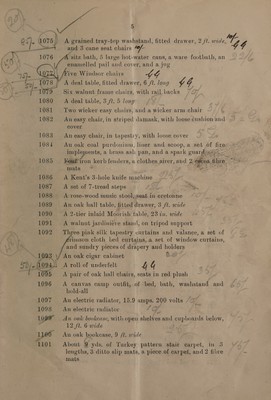 3
1075 A grained tray-top washstand, fitted drawer, 2 ft. wide,
and 3 cane seat chairs
1076 A sitz bath, 3 large hot-water cans, a ware footbath, an
enamelled pail and cover, and a jug
1077 Five Windsor chairs
1078 A deal table, fitted drawer, 6 ft. long
1079 Six walnut frame chairs, with rail backs
1080 A deal table, 3 ft. 5 long
1081 Two wicker easy chairs, and a wicker arm chair
1082 An easy chair, in striped damask, with loose cushion and
cover
1083 An easy chair, in tapestry, with loose cover
1084 An oak coal purdonium, liner and scoop, a set of fire
implements, a brass ash pan, and a spark guard
1085 Four iron kerb fenders, a clothes airer, and 2 cocoa fibre
mats
1086 A Kent's 3-hole knife machine
1087 A set of 7-tread steps
1088 A rose-wood music stool, seat in cretonne
1089 An oak hall table, fitted drawer, 3 ft. wide
1090 A 2-tier inlaid Moorish table, 23 in. wide
1091 A walnut jardinière stand, on tripod support
1092 Three pink silk tapestry curtains and valance, a set of
crimson cloth bed curtains, a set of window curtains,
and sundry pieces of drapery and holders
1093 An oak cigar cabinet
1094 A roll of underfelt
1095 A pair of oak hall chairs, seats in red plush
1096 A canvas camp outfit, of bed, bath, washstand and
hold-all
1097 An electric radiator, 15.9 amps. 200 volts
1098 An electric radiator
1099 An oak bookcase, with open shelves and cupboards below,
12 ft. 6 wide
1100 An oak bookcase, 9 ft. wide
1101 About yds. of Turkey pattern stair carpet, in 3
lengths, 3 ditto slip mats, a piece of carpet, and 2 fibre
mats